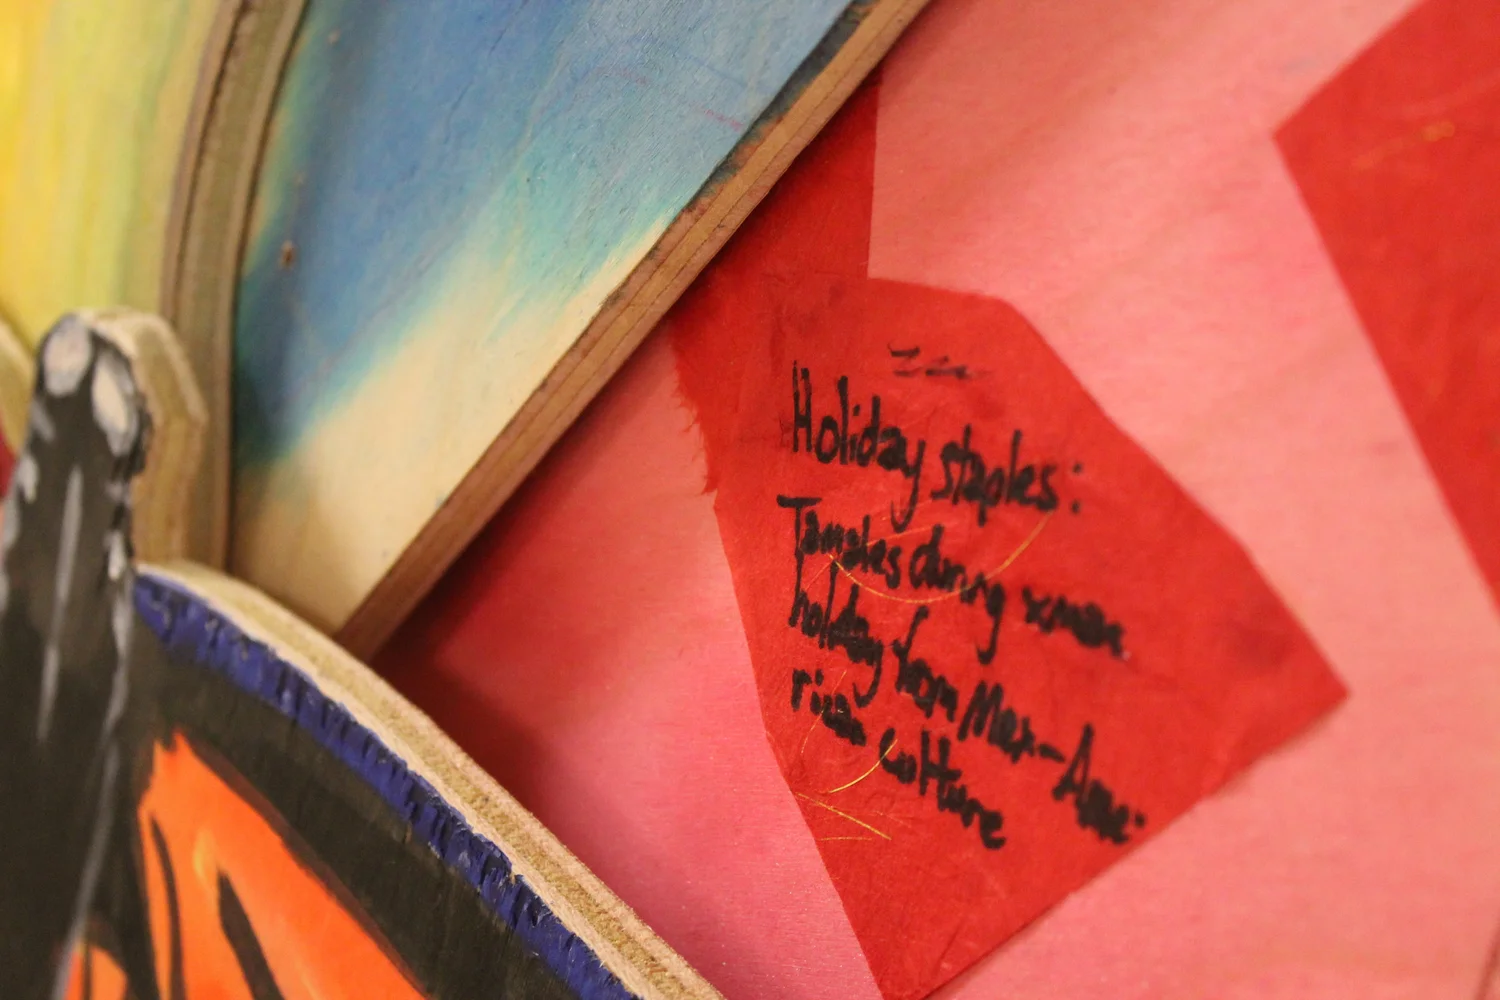 Holiday staples:
Tamales during xmas
holiday from Mex-Ame:
rican culture